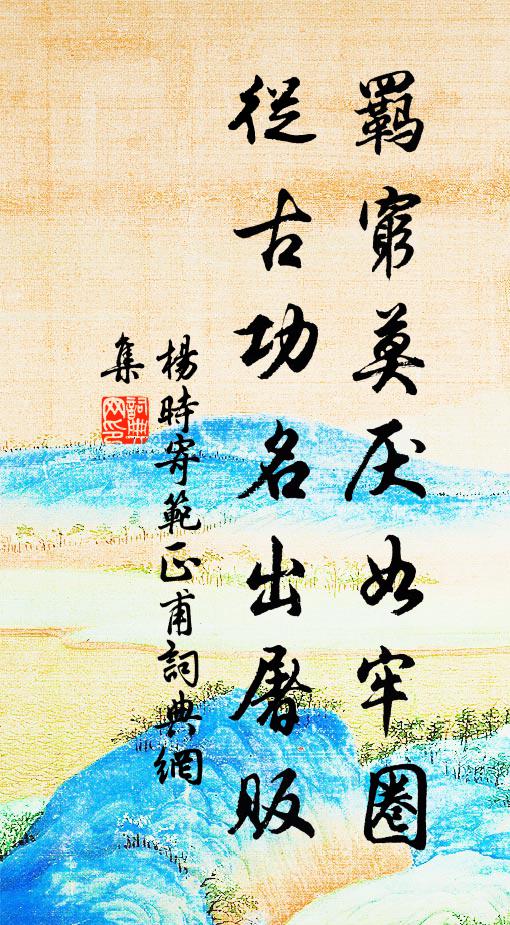 羈窮莫厌如牢圈
從古功名出屠販
楊時寄範正甫詞典網
集
詞典
网印